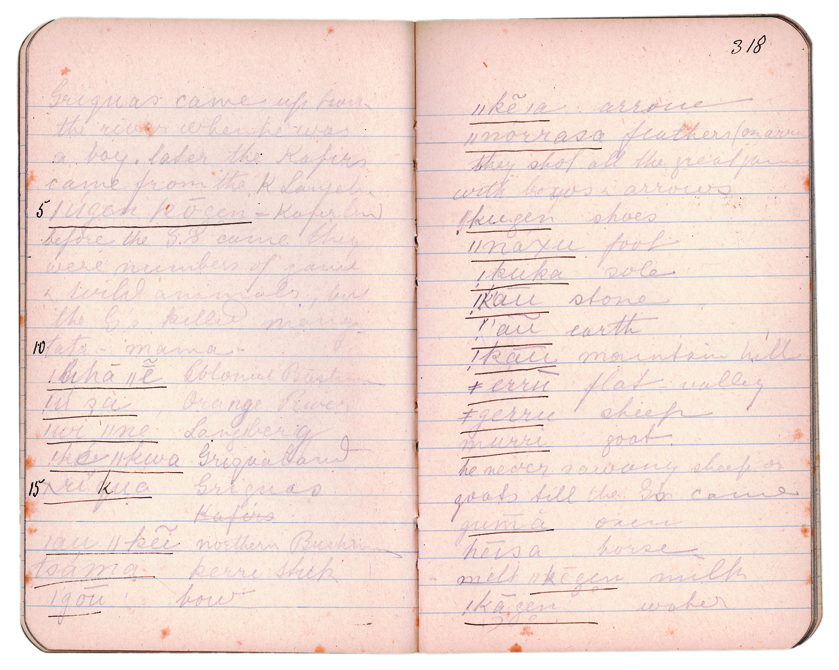 Griquas came up from
the river when he was
a boy. later the Kafirs
came from the K Langeb
5 /ugen /kōgen - Kafirland
before the G.S. came they
were numbers of game
& wild animals, but
the Gs killed many
10 tata - mama -
ǁē Colonial Bushm
zu Orange River
ǀwi ǁne Langberg
ǁkwa Griqualand
15 Griquas
Kafirs
ǀau ǁkẽi northern Bushm
tsama kerri stick
ǀgōu bow
318
ǁkẽǀa arrow
ǁnorrasa feathers (on arrow
they shot all the great game
with bows & arrows
!kugen shoes
ǁnaxu foot
!kuka sole
!kau stone
!'aū earth
!kau mountain hill
ǂerrū flat - valley
ǂgerru sheep
murri goat
he never saw any sheep or
goats till the Gs came
gumā oxen
hēisa horse
melt ǁkēgen milk
!kāgen water